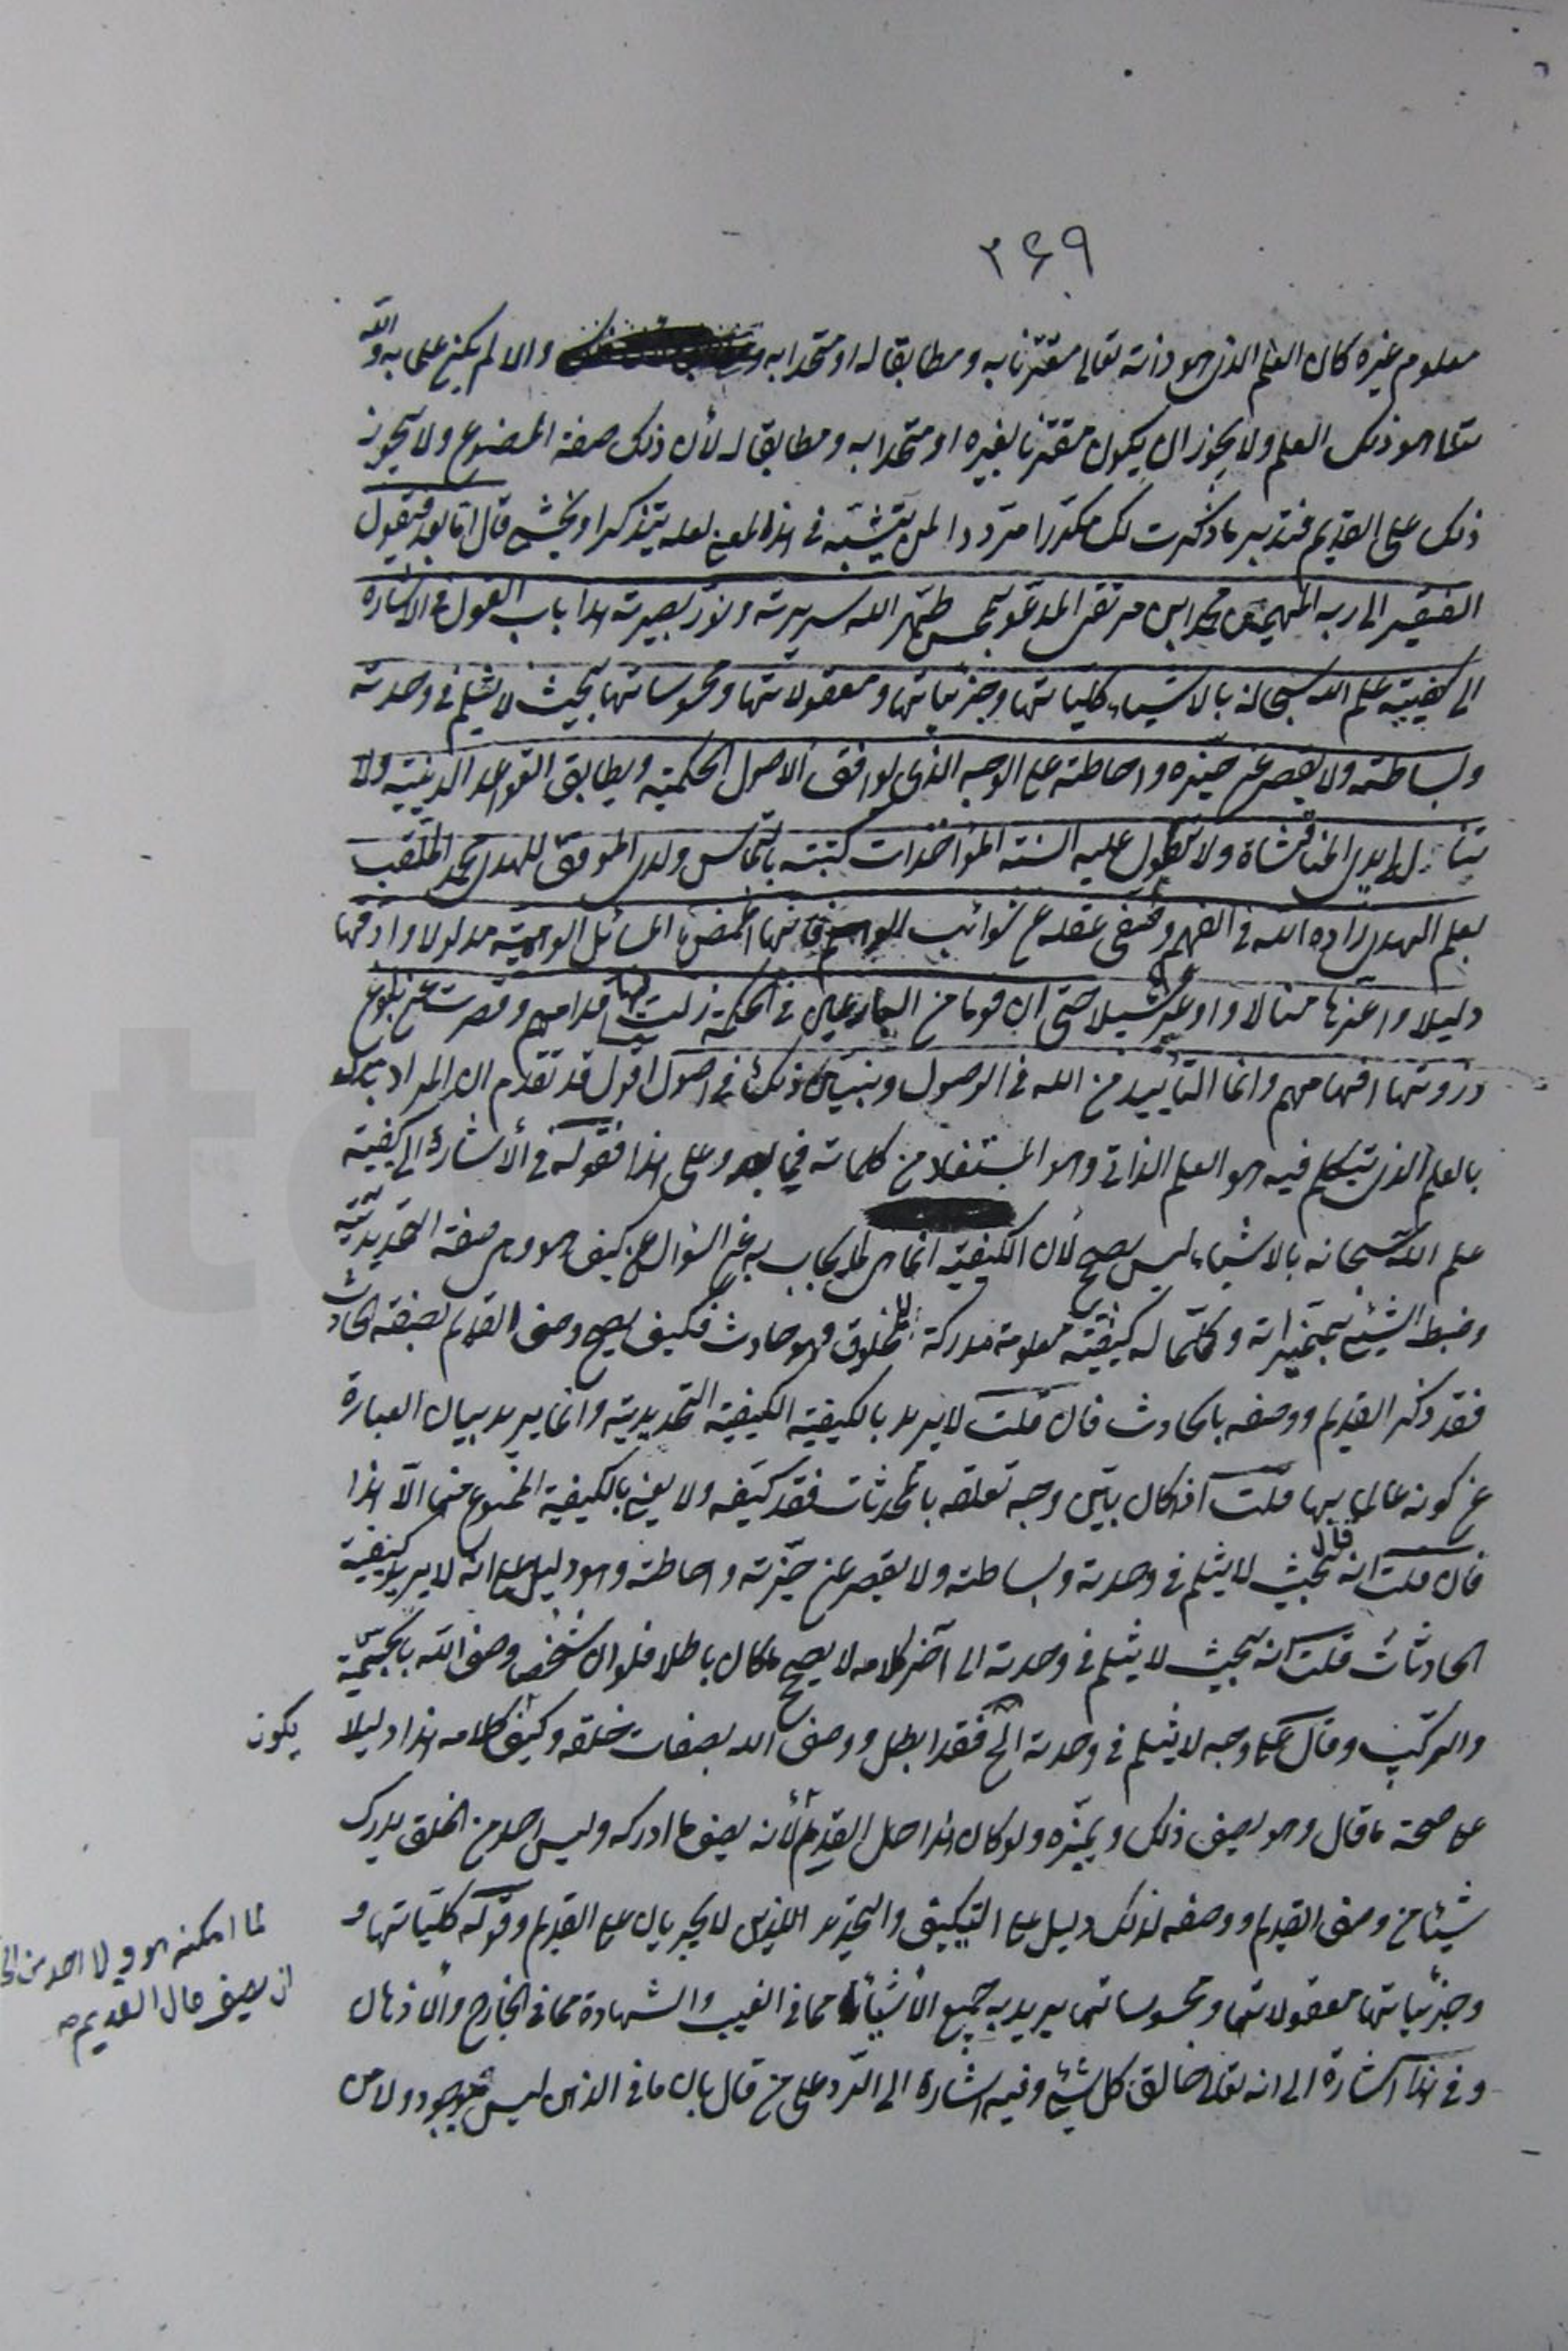 ٢۶٩
معلوم غيره كان العلم الذى هو ذاته تعالى مقترنا به ومطابقا له او متحدا به والا لم يكن علما به والله
هو ذلك العلم ولا يجوز ان يكون مقترنا بغيره او متحدا به ومطابقا له لأن ذلك صفة المصنوع ولا يجوز
ذلك على القديم فتدبر ما ذكرت لك مكررا مرددا لمن يتثبّت فى هذا المعنى لعله يتذكر او يخشى قال اما بعد فيقول
الفقير الى ربه المهيمن محمد ابن مرتضى المدعو بمحسن طهّر الله سريرته ونوّر بصيرته هذا باب القول فى الاشارة
الى كيفيّة علم الله سبحانه بالاشياء كلياتها وجزئياتها ومعقولاتها ومحسوساتها بحيث لا يثلم فى وحدته
وبساطته ولا يقصر عن حيزه واحاطته على الوجه الذى يوافق الاصول الحكميّة ويطابق القواعد الدينيّة ولا
تتنازل اليه ايدى المناقشات ولا تطول عليه السنة المؤاخذات كتبته بالتماس ولدى الموفق للهدى محمد الملقب
بعلم الهدى زاده الله فى الفهم وصفى عقله عن شوائب الوهم فانها اغمض المسائل مدلولا وادقها
دليلا واعزها منالا واوعرها سبيلا حتى ان قوما من البارعين فى الحكمة زلت فيها اقدامهم وقصرت عن بلوغ
ذروتها افهامهم وانما التأييد من الله فى الوصول ونبيّن ذلك فى اصول اقول قد تقدم ان المراد
بالعلم الذى يتكلم فيه هو العلم الذاتى وهو المستفاد من كلماته فيما بعد وعلى هذا فقوله فى الأشارة الى كيفيّة
علم الله سبحانه بالاشياء ليس بصحيح لأن الكيفيّة انما هى ما يجاب به عن السؤال عن كيف هو وهى صفة التحديديّة
وضبط الشيئ بمميزاته وكلّما له كيفيّة معلومة مدركة للمخلوق فهو حادث فكيف يصح وصف القديم بصفة الحادث
فقد ذكر القديم ووصفه بالحادث فان قلت لا يريد بالكيفية الكيفية التحديدية وانما يريد بيان العبارة
عن كونه عالما بها قلت اذا كان بيّن وجه تعلقه بالمحدثات فقد كيّفه ولا يعنى بالكيفية الممنوع منها الّا هذا
فان قلت انه قال بحيث لا يثلم فى وحدته وبساطته ولا يقصر عن حيزته واحاطته وهو دليل على انه لا يريد كيفية
الحادثات قلت انه بحيث لا يثلم فى وحدته الى آخر كلامه لا يصحح ما كان باطلا فلو ان شخصا وصف الله بالجسميّة
والتركيب وقال على وجه لا يثلم فى وحدته الخ فقد ابطل ووصف الله بصفات خلقه وكيف كلامه هذا دليلا
يكون
على صحة ما قال وهو يصف ذلك ويميّزه ولو كان هذا اصل القديم لأنه يصف ما ادركه وليس احد من الخلق يدرك
شيئا من وصف القديم ووصفه لذلك دليل على التكييف والتحديد اللذين لا يجريان على القديم وقوله كلّياتها و
لما امكنه هو ولا احد من
ان يصف حال القديم صح
وجزئياتها معقولاتها ومحسوساتها يريد به جميع الأشياء مما فى الغيب والشهادة مما فى الخارج والأذهان
وفى هذا اشارة الى انه تعالى خالق كل شيئ وفيه اشارة الى الرّد على من قال بان ما فى الذهن ليس بموجود ولا من